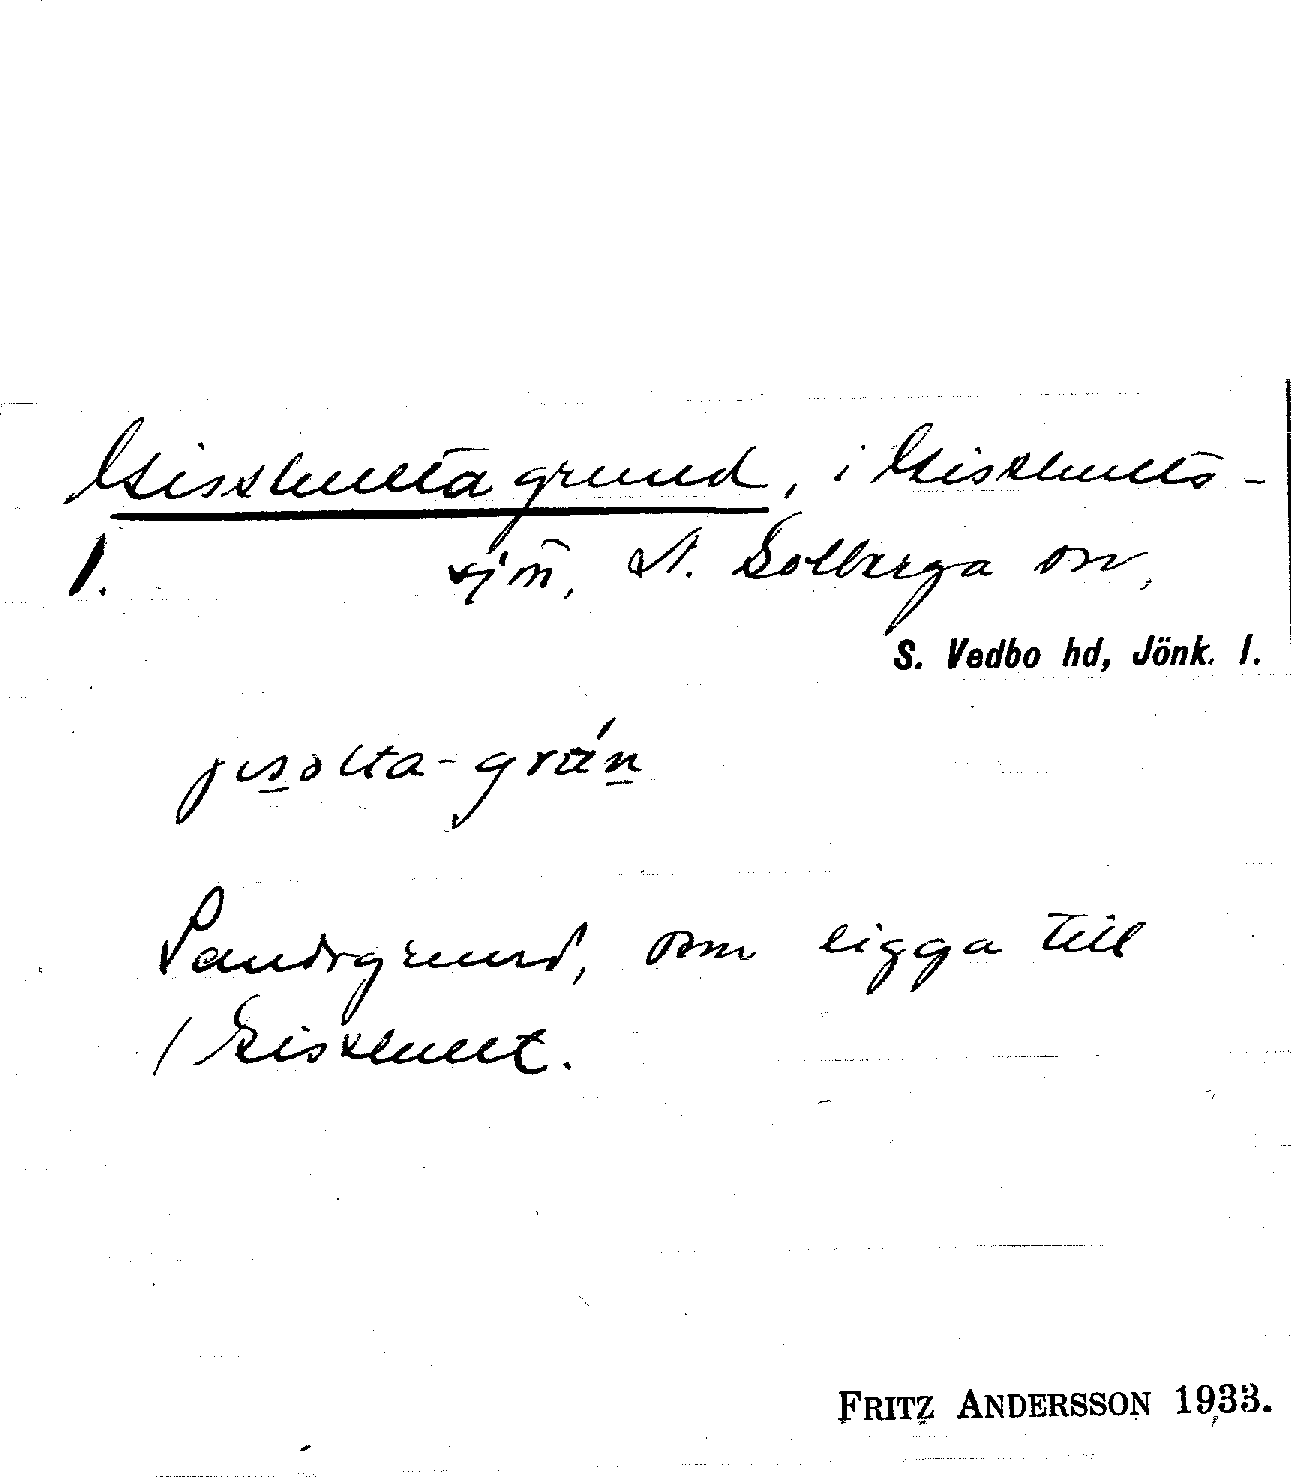 Gisshulta grund, i Gisshults-
1. sjön, N. Solberga sn,
S. Vedbo hd, Jönk. l.
jisolta-grán
Sandgrund, som ligga till
/ Gisshult.
FRITZ ANDERSSON 1933.